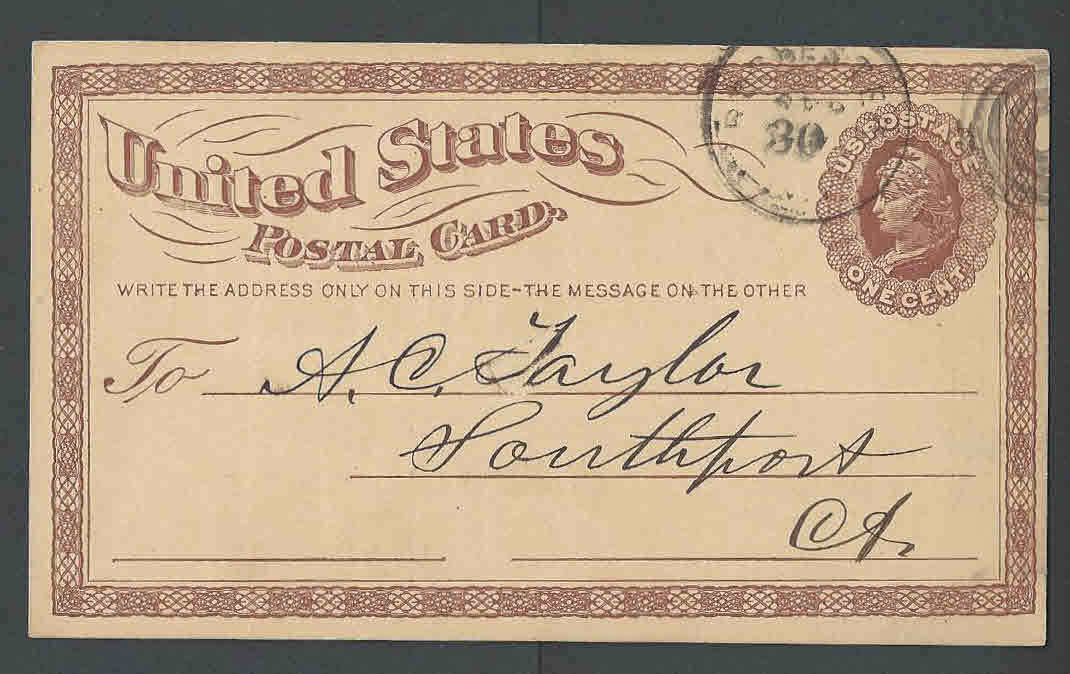 United States
POSTAL CARD.
30
U.S. POSTAGE
ONE CENT
WRITE THE ADDRESS ONLY ON THIS SIDE-THE MESSAGE ON THE OTHER
To A. C. Taylor
Southport
Ct.